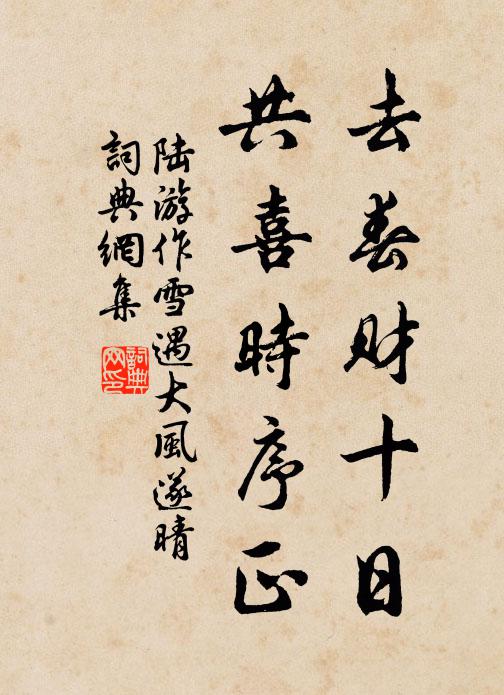 去春財十日
共喜時序正
陆游作雪遇大風遂晴
詞典網集
詞典網印